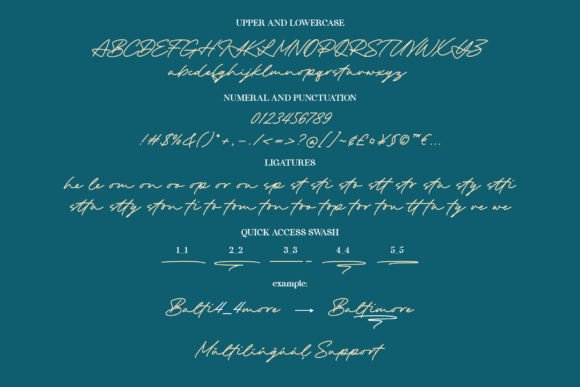 UPPER AND LOWERCASE
ABCDEFGHIJKLMNOPQRSTUVWXYZ
abcdefghijklmnopqrstuvwxyz
NUMERAL AND PUNCTUATION
0123456789
!#$%&()*+,-./<=>?@[]~¢£¤¥§©™€...
LIGATURES
he le om on oo op or ou sp st sti sto stt str sta sty stti
stta stty ston ti to tom ton too top tor ton tt ta ty ve we
QUICK ACCESS SWASH
1_1 2_2 3_3 4_4 5_5
example:
Balti4_4more → Baltimore
Multilingual Support